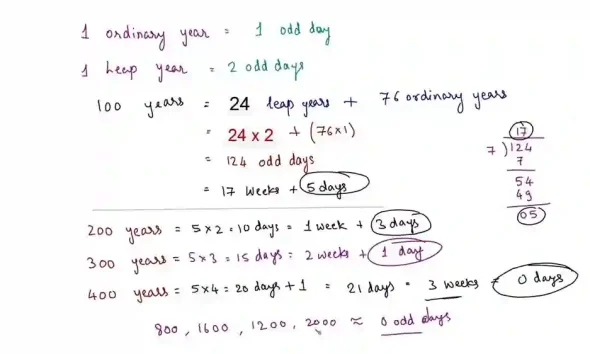 1 ordinary year = 1 odd day
1 leap year = 2 odd days
100 years = 24 leap years + 76 ordinary years
= 24 x 2 + (76x1)
= 124 odd days
= 17 weeks + 5 days
17
7 ) 124
7
54
49
05
200 years = 5 x 2 = 10 days = 1 week + 3 days
300 years = 5 x 3 = 15 days = 2 weeks + 1 day
400 years = 5 x 4 = 20 days + 1 = 21 days = 3 weeks = 0 days
800, 1600, 1200, 2000 ≈ 0 odd days